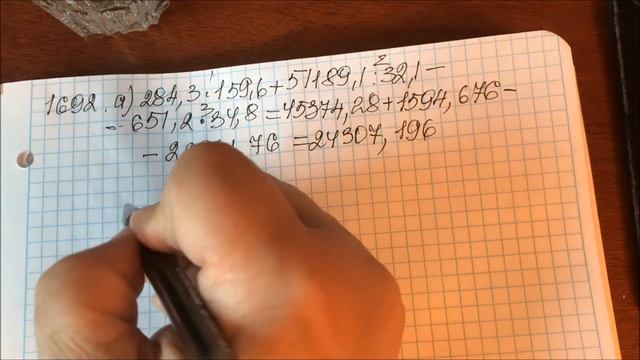 1692. а) 284,3 · 159,6 + 51189,1 : 32,1 –
– 651,2 · 34,8 = 45374,28 + 1594,676 –
– 2 76 = 24307,196